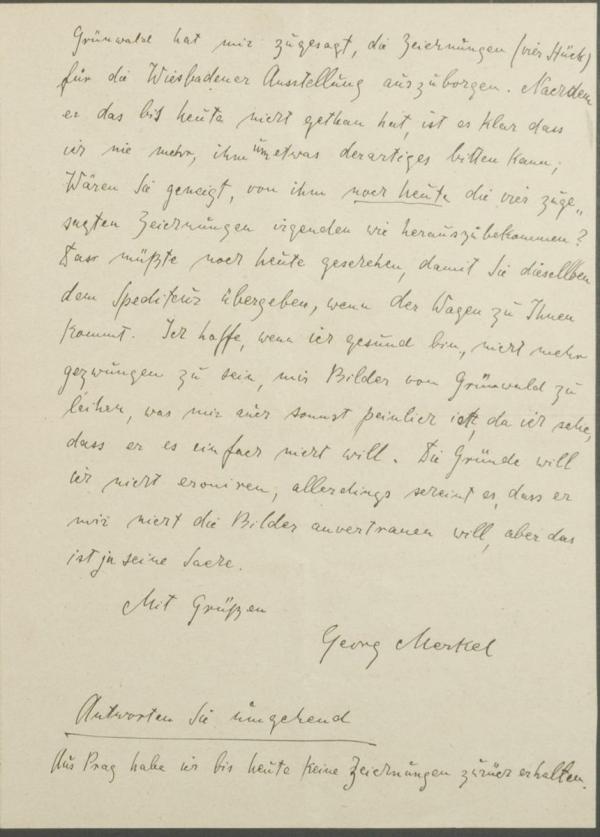 Grünwald hat mir zugesagt, die Zeichnungen (vier Stück)
für die Wiesbadener Ausstellung auszuborgen. Nachdem
er das bis heute nicht gethan hat, ist es klar dass
ich nie mehr, ihm um etwas derartiges bitten kann,
Wären Sie geneigt, von ihm noch heute die vier zuge„
sagten Zeichnungen irgenden wie herauszubekommen?
Dass müßte noch heute geschehen, damit Sie dieselben
dem Spediteur übergeben, wenn der Wagen zu Ihnen
kommt. Ich hoffe, wenn ich gesund bin, nicht mehr
gezwungen zu sein, mir Bilder vom Grünwald zu
leihen, was mir auch sonnst peinlich ist, da ich sehe,
dass er es einfach nicht will. Die Gründe will
ich nicht eroniren, allerdings scheint es, dass er
mir nicht die Bilder anvertrauen will, aber das
ist ja seine Sache.
Mit Grüßen
Georg Merkel
Antworten Sie umgehend
Aus Prag habe ich bis heute keine Zeichnungen zurück erhalten.